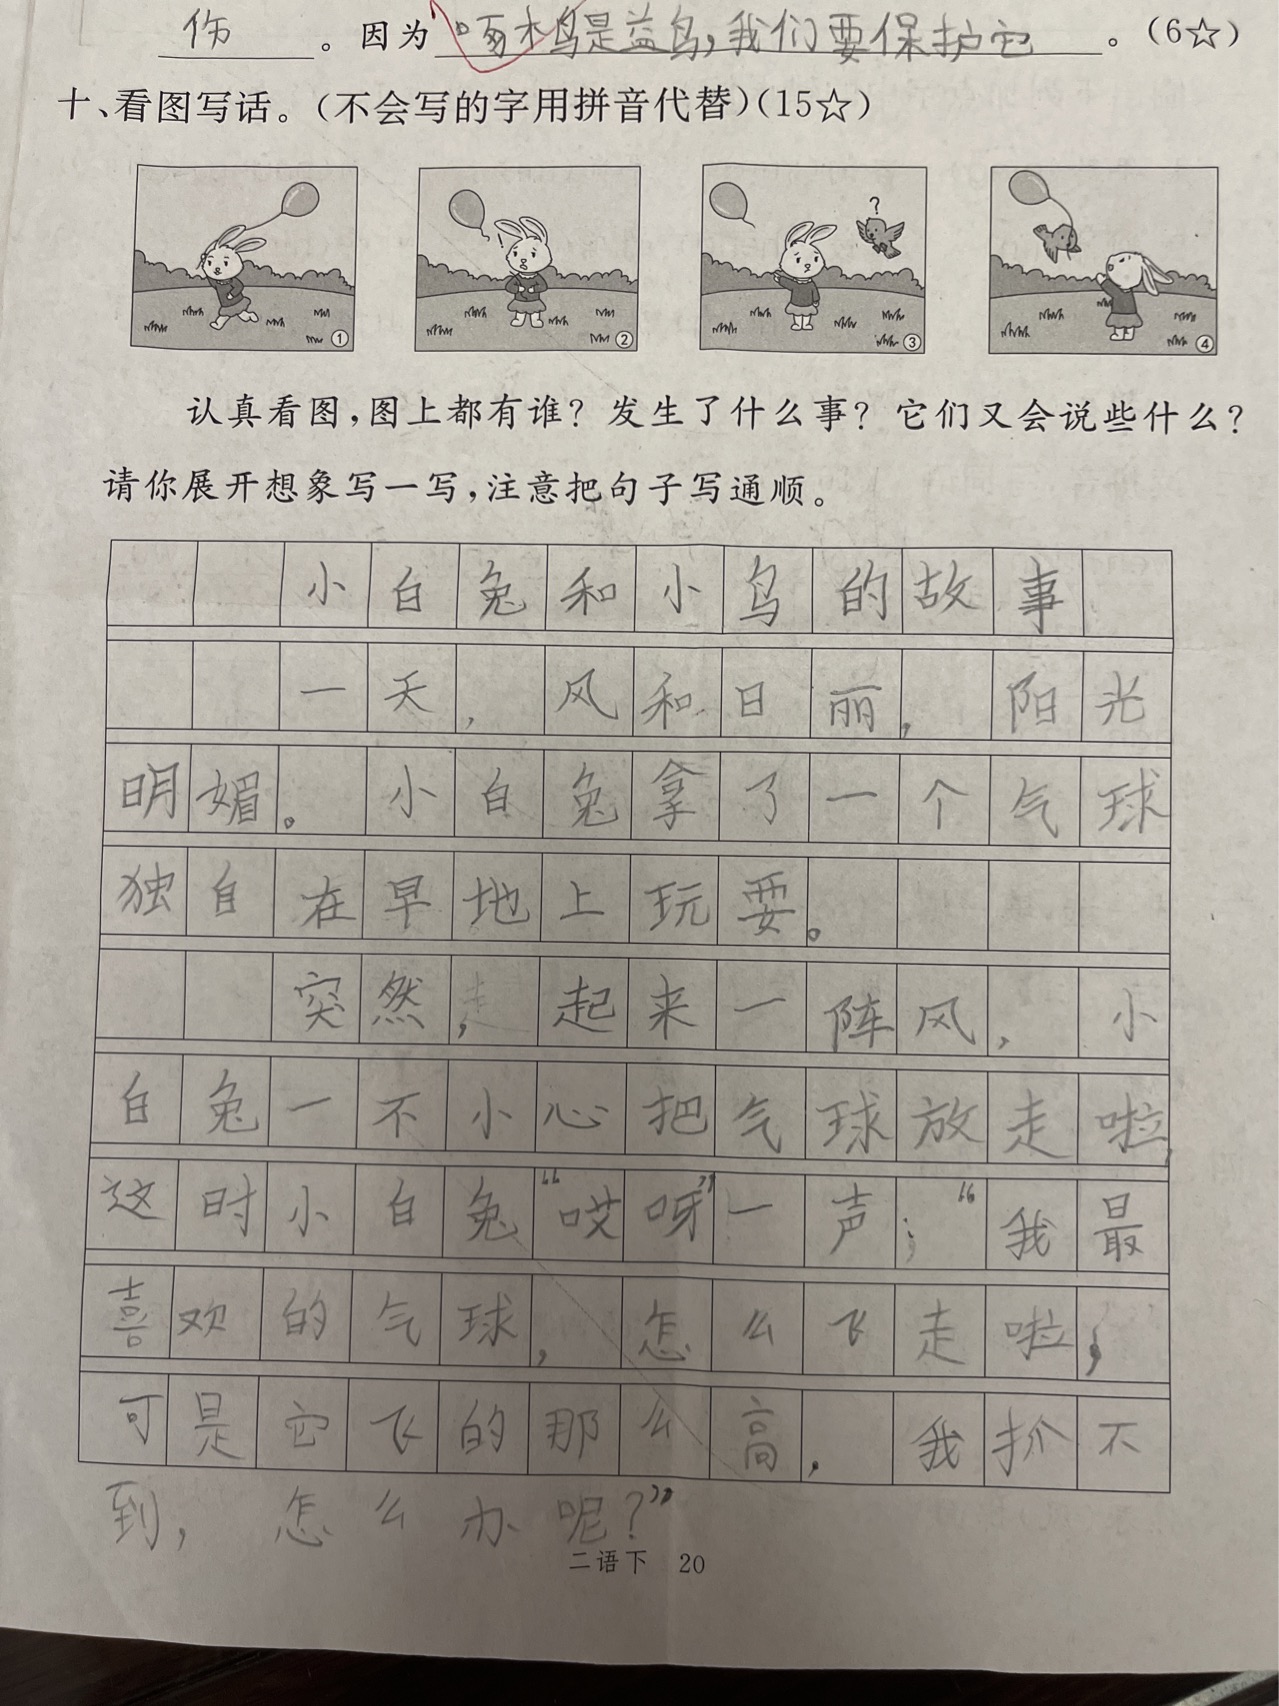 伤。因为啄木鸟是益鸟,我们要保护它。(6☆)
十、看图写话。(不会写的字用拼音代替)(15☆)
① ② ? ③ ④
认真看图,图上都有谁?发生了什么事?它们又会说些什么?
请你展开想象写一写,注意把句子写通顺。
小白兔和小鸟的故事
一天,风和日丽,阳光
明媚。小白兔拿了一个气球
独自在早地上玩耍。
突然,起来一阵风,小
白兔一不小心把气球放走啦,
这时小白兔“哎呀”一声;“我最
喜欢的气球,怎么飞走啦,
可是它飞的那么高,我扒不
到,怎么办呢?”
二语下 20